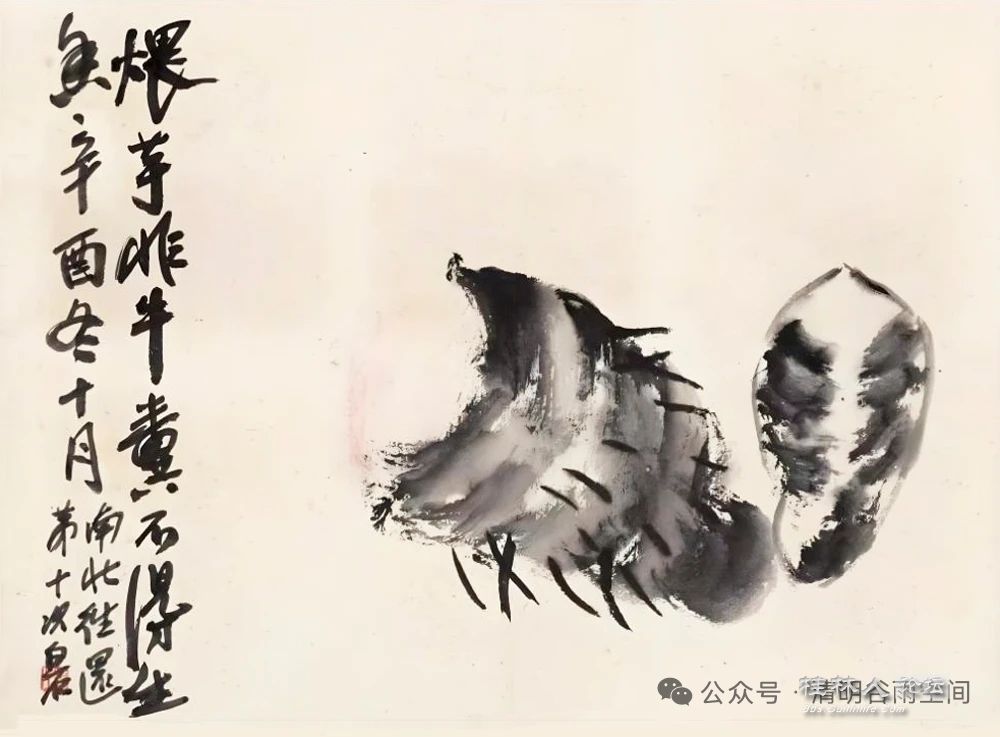 煨芋非牛糞不得生
香辛酉冬十月
南北往還
第十次白石
公众号·清明谷雨空间